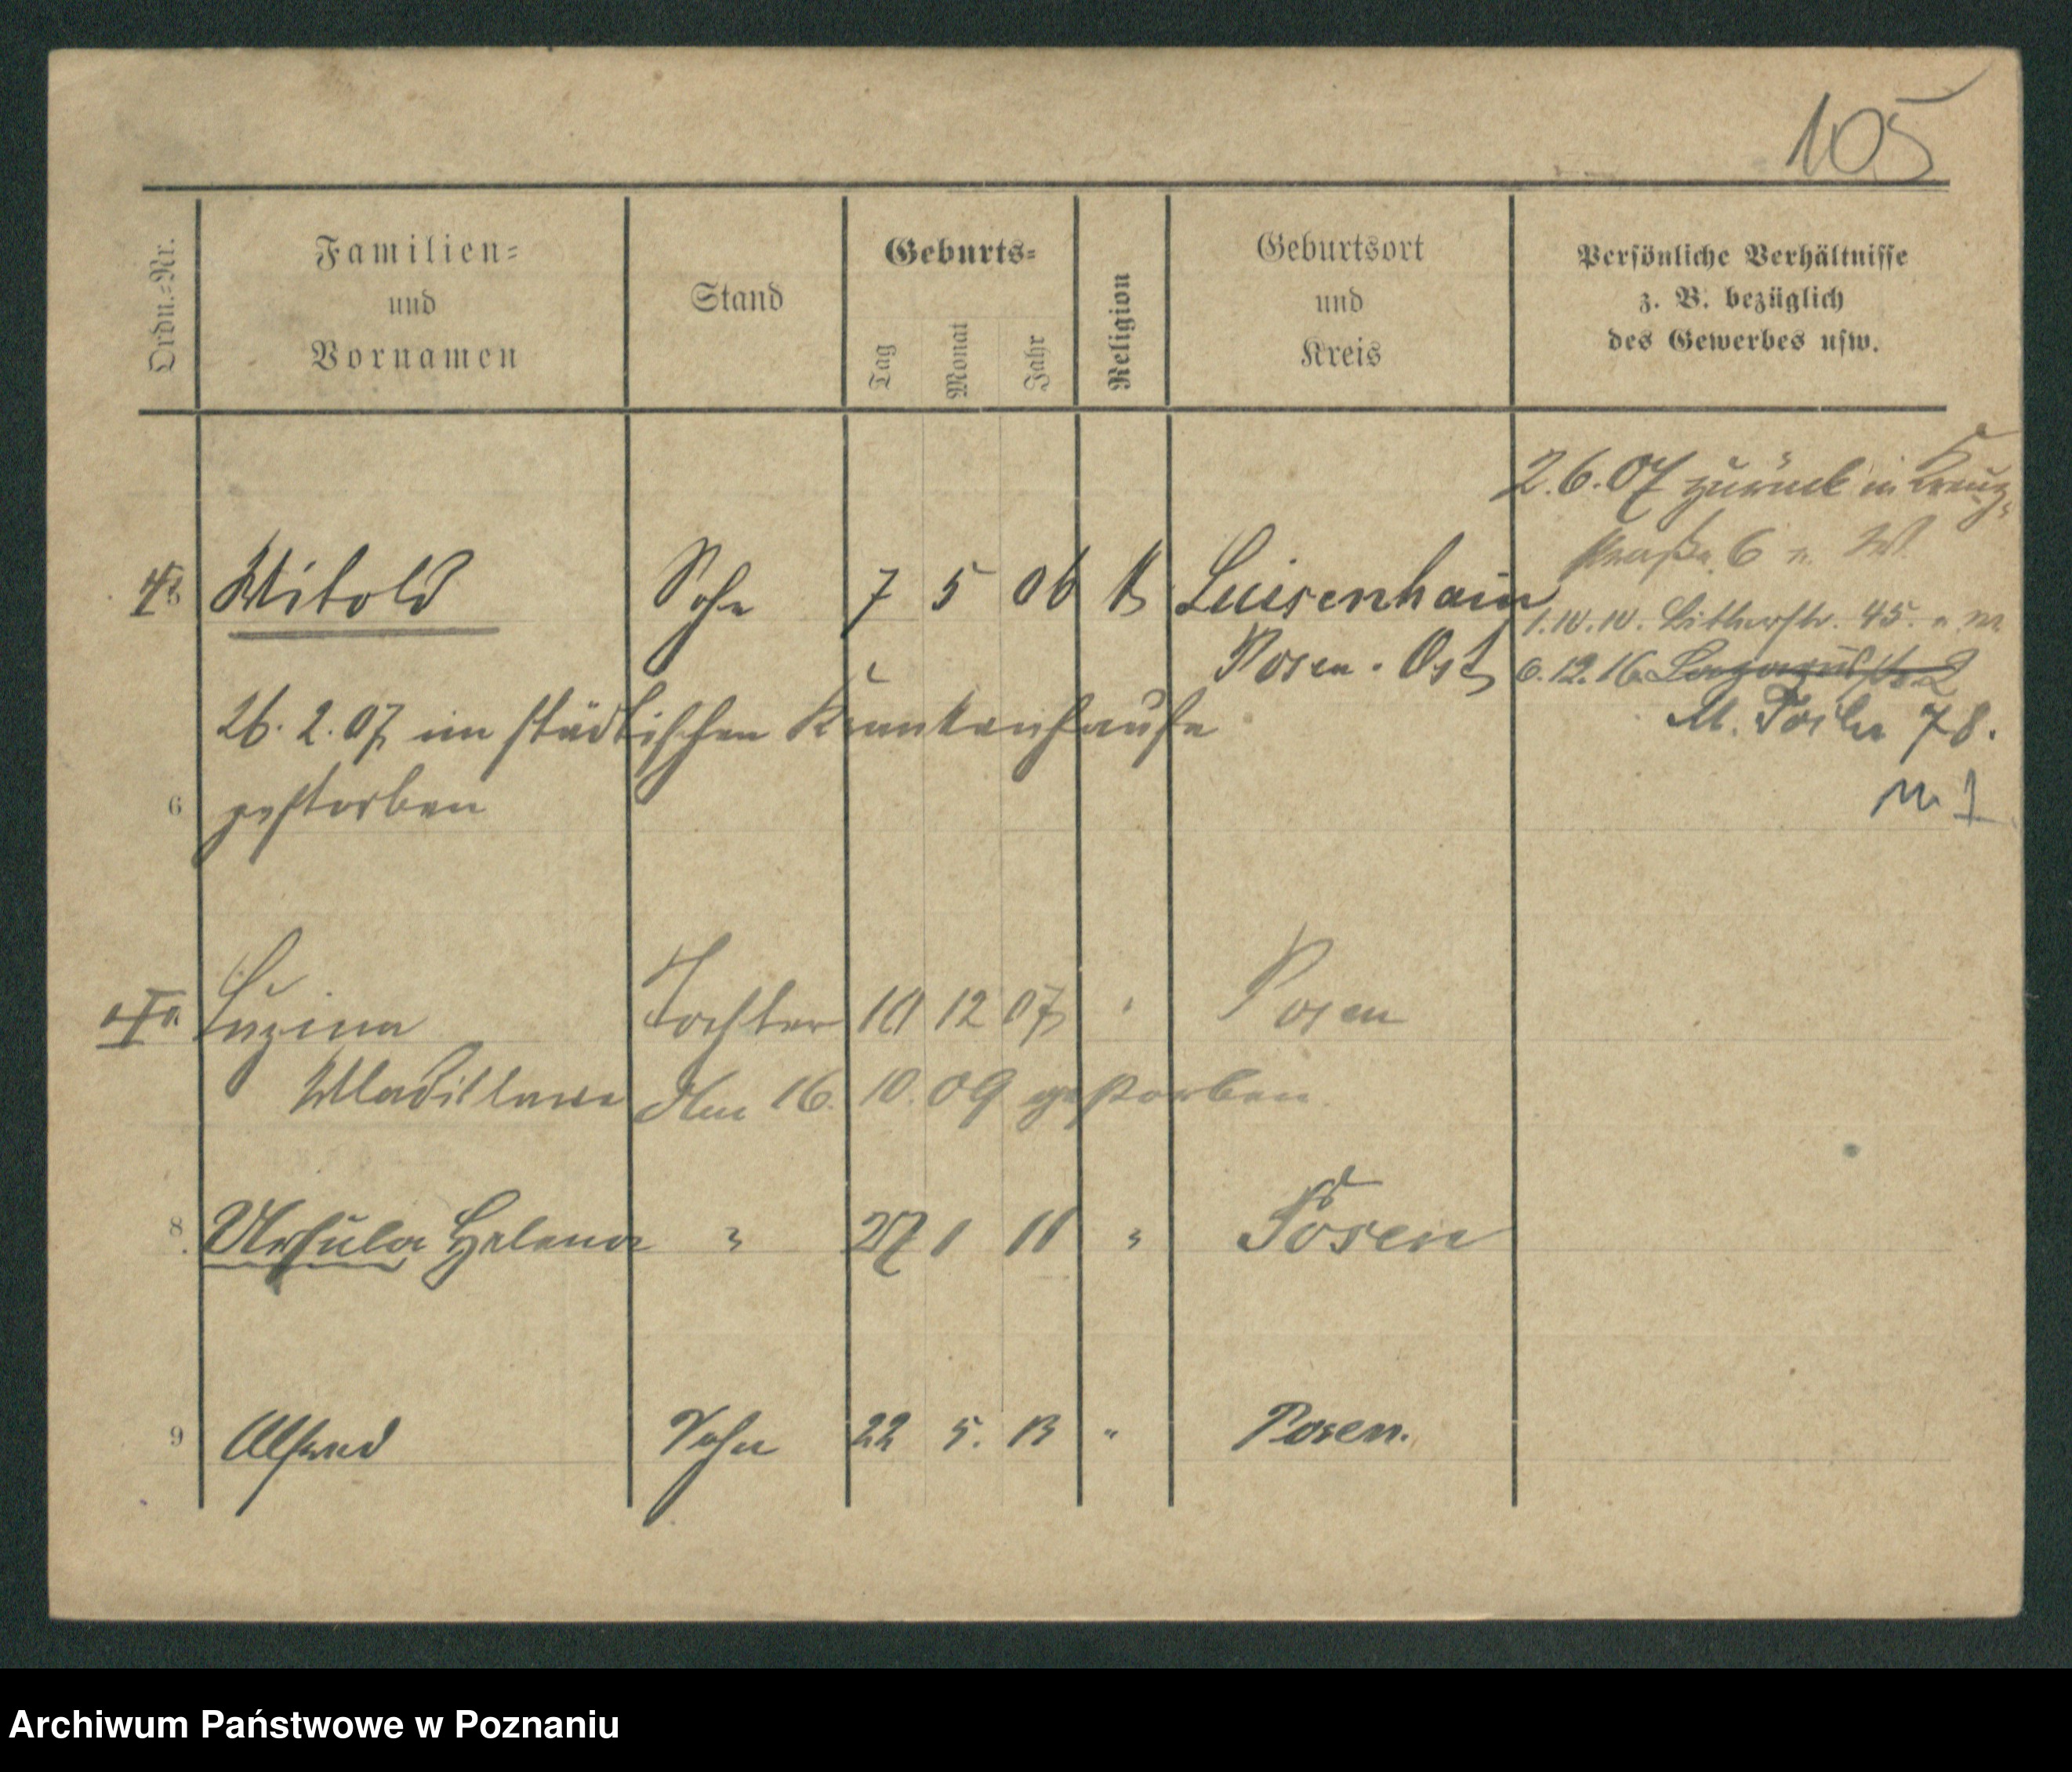 105
Ordn.=Nr.
Familien=
und
Vornamen
Stand
Geburts=
Tag
Monat
Jahr
Religion
Geburtsort
und
Kreis
Persönliche Verhältnisse
z. B. bezüglich
des Gewerbes usw.
2.6.07 zurück in Kreuz-
straße 6
Witold Sohn 7 5 06 k Luisenhain
1.10.10. 45.
Posen-Ost
6.12.16
26.2.07 im städtischen Krankenhause
78.
6 gestorben
Luzina Tochter 10 12 07 " Posen
Wladislawa Am 16. 10. 09 gestorben
8 Ursula Helena " 27 1 11 " Posen
9 Alfred Sohn 22 5. 13 " Posen.
Archiwum Państwowe w Poznaniu